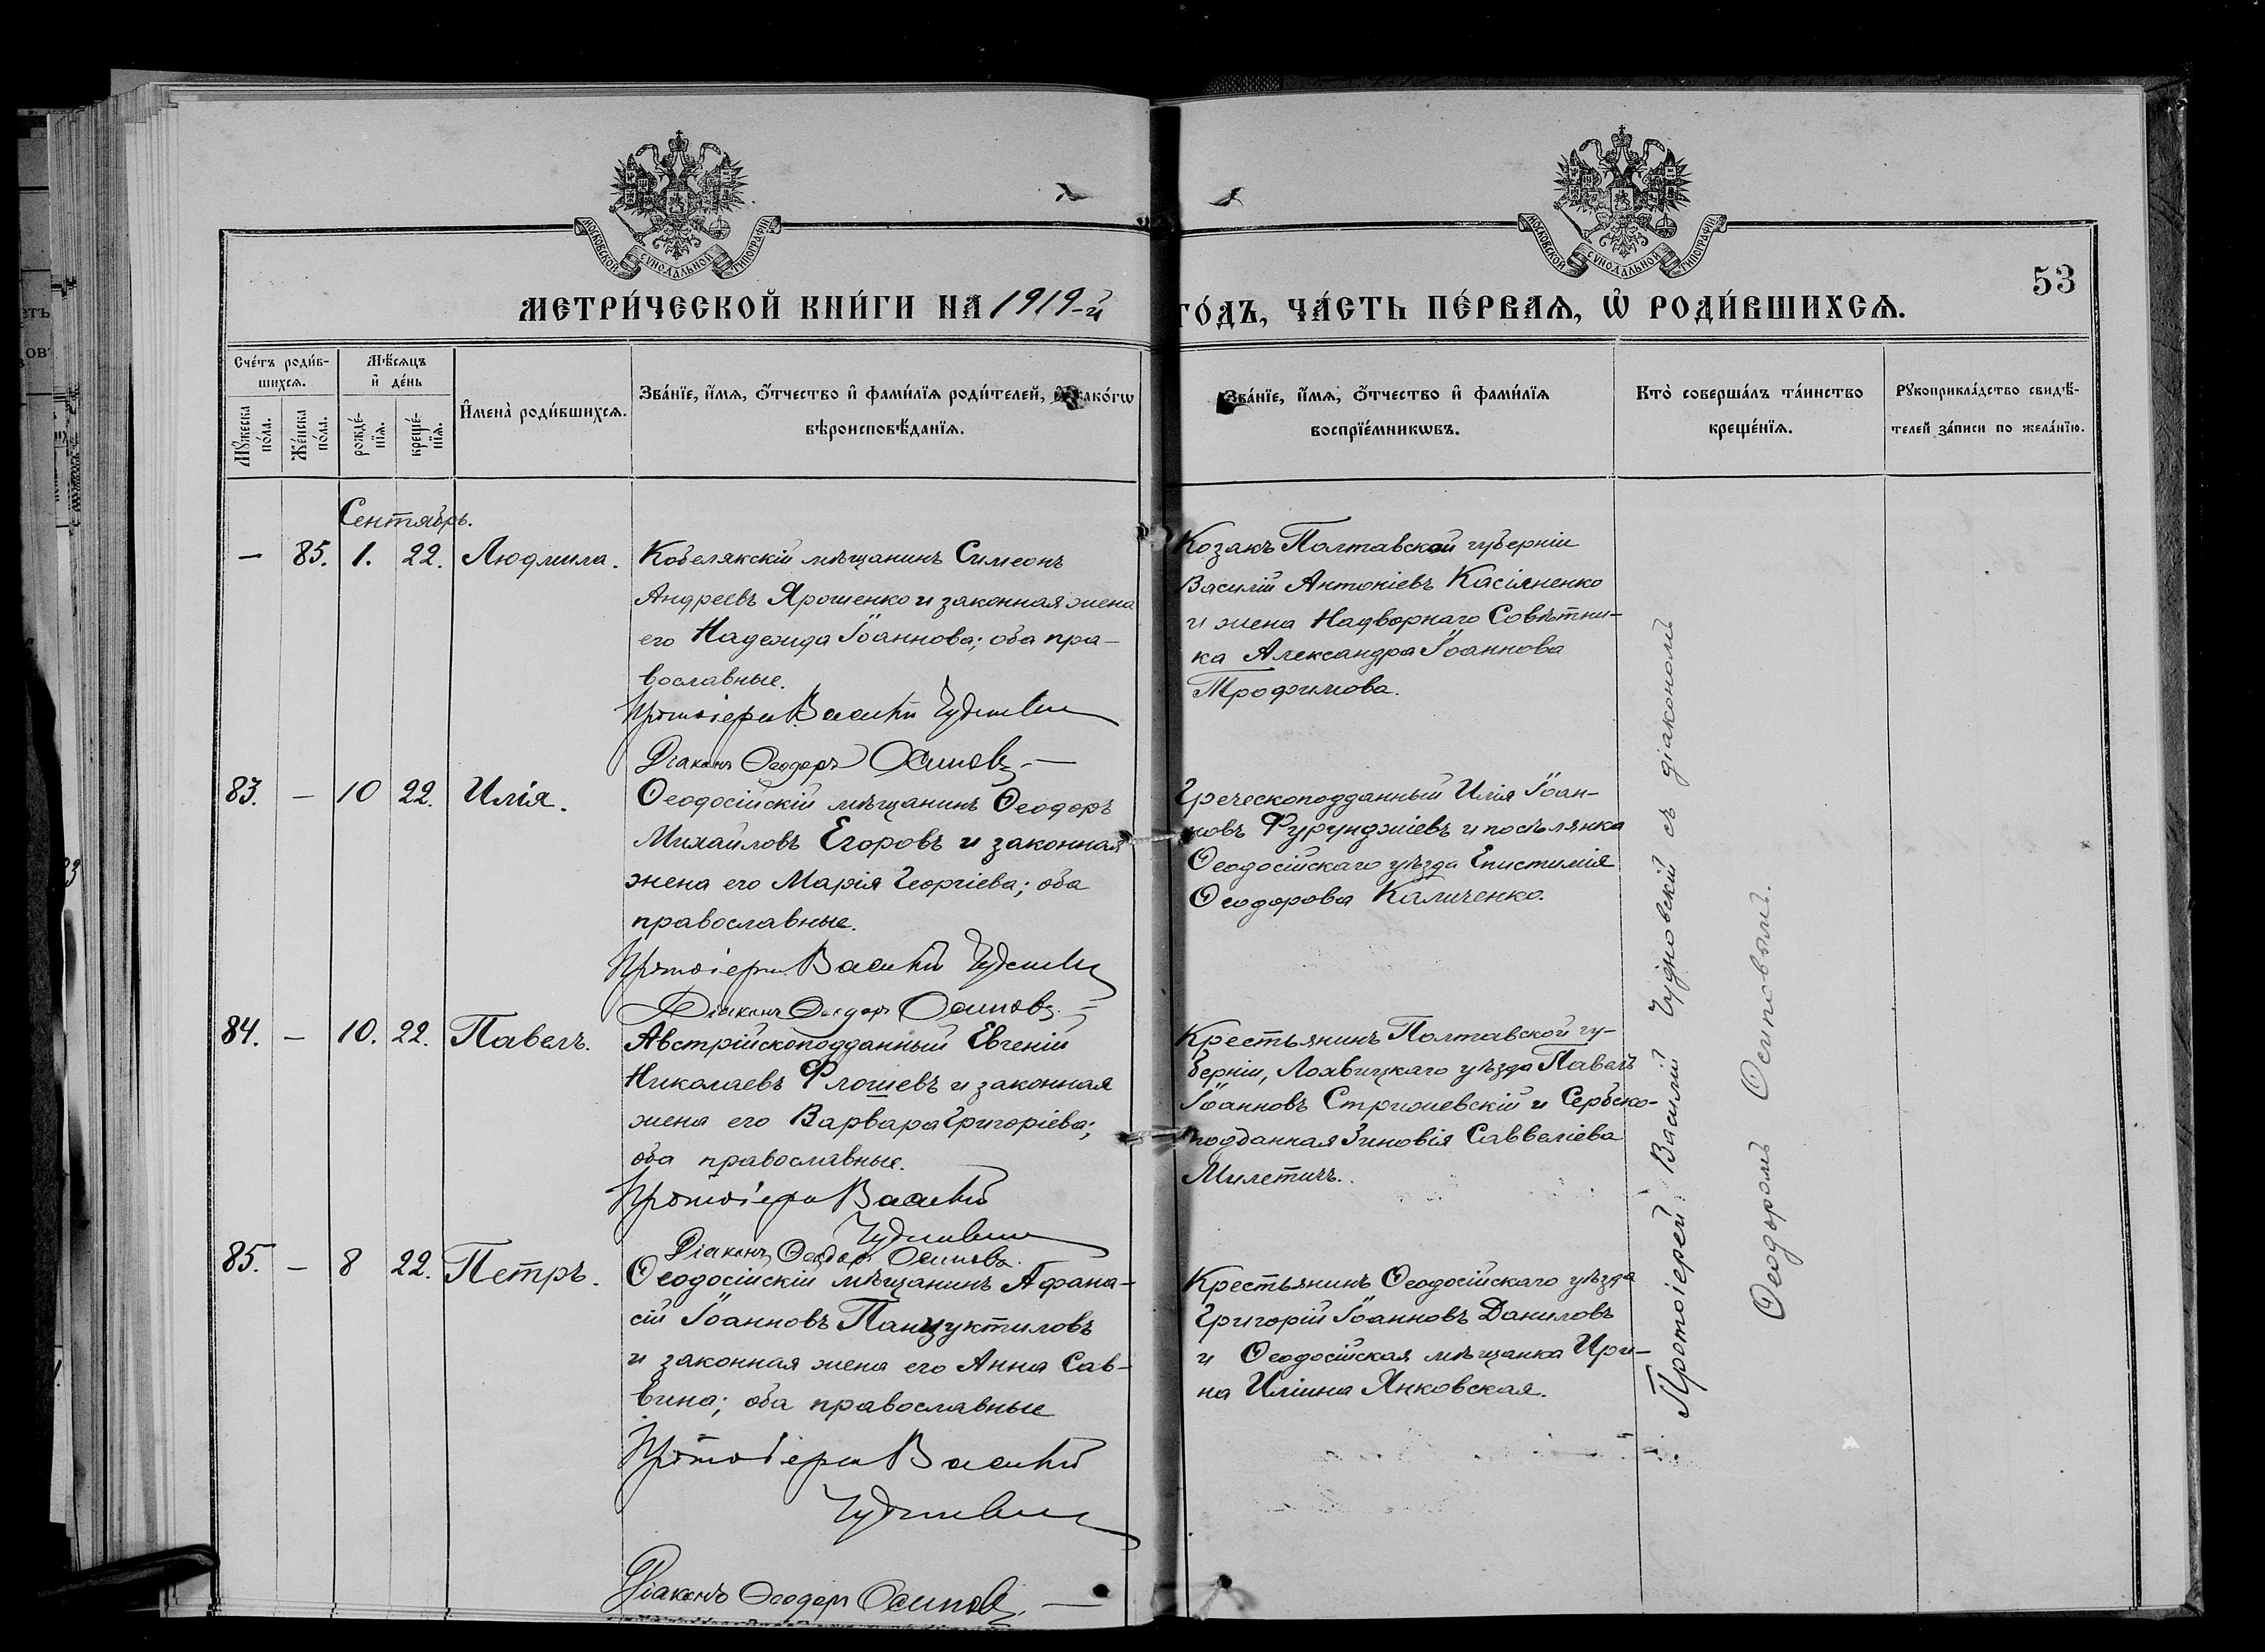 МОСКОВСКОЙ СѴНОДАЛЬНОЙ ТИПОГРАФІИ
МОСКОВСКОЙ СѴНОДАЛЬНОЙ ТИПОГРАФІИ
53
МЕТРИ́ЧЕСКОЙ КНИ́ГИ НА 1919-й
ГО́ДЪ, ЧА́СТЬ ПЕ́РВАѦ, Ѽ РОДИ́ВШИХСѦ.
Сче́тъ роди́в-
шихсѧ.
Мꙋ́жеска
по́ла.
Же́нска
по́ла.
Мѣ́сѧцъ
и҆ де́нь
рожде́-
нїѧ.
креще́-
нїѧ.
И҆мена̀ роди́вшихсѧ.
Зва́нїе, и҆́мѧ, ѻ҆́тчество и҆ фами́лїѧ роди́телей, и҆ како́гѡ
вѣроисповѣ́данїѧ.
Зва́нїе, и҆́мѧ, ѻ҆́тчество и҆ фами́лїѧ
воспрїе́мникѡвъ.
Кто̀ соверша́лъ та́инство
креще́нїѧ.
Рꙋкоприкла́дство свидѣ́-
телей за́писи по жела́нїю.
Сентябрь.
— 85. 1. 22. Людмила.
Кобелякскій мѣщанинъ Симеонъ
Андреевъ Ярошенко и законная жена
его Надежда Іоаннова; оба пра-
вославные.
Протоіерей Василій Чудновскій
Діаконъ Ѳеодоръ Осиповъ. —
Козакъ Полтавской губерніи
Василій Антоніевъ Касіяненко
и жена Надворнаго Совѣтни-
ка Александра Іоаннова
Трофимова.
83. — 10 22. Илія.
Ѳеодосійскій мѣщанинъ Ѳеодоръ
Михаиловъ Егоровъ и законная
жена его Марія Георгіева; оба
православные.
Протоіерей Василій Чудновскій
Діаконъ Ѳеодоръ Осиповъ. —
Греческоподданный Илія Іоан-
новъ Фурунджіевъ и поселянка
Ѳеодосійскаго уѣзда Епистимія
Ѳеодорова Каличенко.
84. — 10. 22. Павелъ.
Австрійскоподданный Евгеній
Николаевъ Флошевъ и законная
жена его Варвара Григоріева;
оба православные.
Протоіерей Василій
Чудновскій
Діаконъ Ѳеодоръ Осиповъ.
Крестьянинъ Полтавской гу-
берніи, Лохвицкаго уѣзда Павелъ
Іоанновъ Стрижевскій и Сербско-
подданная Зиновія Саввеліева
Милетичъ.
85. — 8 22. Петръ.
Ѳеодосійскій мѣщанинъ Афана-
сій Іоанновъ Панцуктиловъ
и законная жена его Анна Сав-
вина; оба православные
Протоіерей Василій
Чудновскій
Діаконъ Ѳеодоръ Осиповъ. —
Крестьянинъ Ѳеодосійскаго уѣзда
Григорій Іоанновъ Даниловъ
и Ѳеодосійская мѣщанка Ири-
на Иліина Янковская.
Протоіерей Василій Чудновскій съ діакономъ
Ѳеодоромъ Осиповымъ.